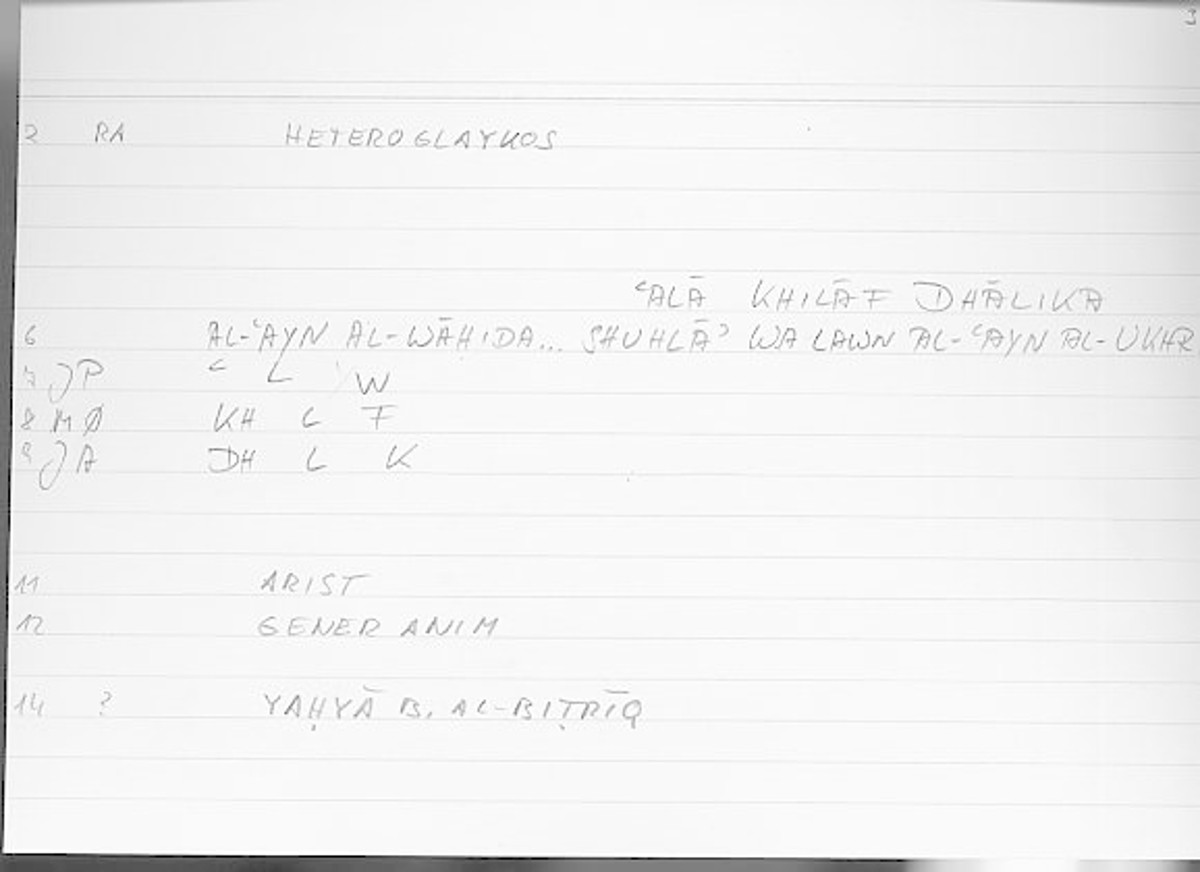 3
2 RA HETEROGLAYKOS
ʿALĀ KHILĀF DHĀLIKA
6 AL-ʿAYN AL-WĀḤIDA... SHUHLĀʾ WA LAWN AL-ʿAYN AL-UKHR
7 JP ʿ L W
8 MØ KH L F
9 JA DH L K
11 ARIST
12 GENER ANIM
14 ? YAḤYĀ B. AL-BIṬRĪQ